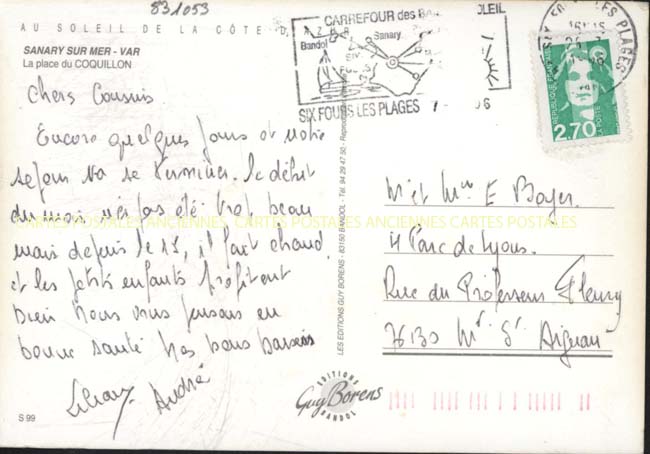 831053
AU SOLEIL DE LA CÔTE D'AZUR
SANARY SUR MER - VAR
La place du COQUILLON
CARREFOUR des BA SOLEIL
Bandol
Sanary
SIX
FOURS
SIX FOURS LES PLAGES
SIX FOURS LES PLAGES
REPUBLIQUE FRANÇAISE
LA POSTE
2,70
Chers Cousins
Encore quelques jours et notre
séjour va se terminer. le début
du mois n'a pas été trop beau
mais depuis le 15, il fait chaud
et les petits enfants profitent
bien Nous vous pensons en
bonne santé Nos bons baisers
André
M et Mme E Boyer.
4 Parc de Lyons.
Rue du Professeur Fleury
76130 Mt St Aignan
CARTES POSTALES ANCIENNES CARTES POSTALES ANCIENNES CARTES POSTALES
LES EDITIONS GUY BORENS - 83150 BANDOL - Tél. 94 29 47 50 - Reproduction
EDITIONS
Guy Borens
BANDOL
S 99